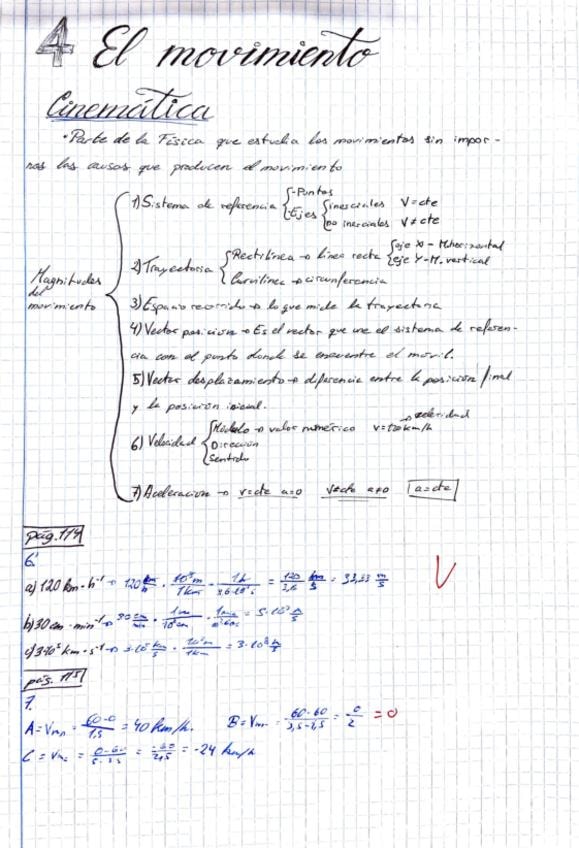 4 El movimiento
Cinemática
• Parte de la Física que estudia los movimientos sin impor-
nos las causas que producen el movimiento
Magnitudes
del
movimiento
1) Sistema de referencia
- Puntos
- Ejes
inerciales V=cte
no inerciales V≠cte
2) Trayectoria
Rectilínea → línea recta
eje X - M. horizontal
eje Y - M. vertical
Curvilínea → circunferencia
3) Espacio recorrido → lo que mide la trayectoria
4) Vector posición → Es el vector que une el sistema de referen-
cia con el punto donde se encuentre el móvil.
5) Vector desplazamiento → diferencia entre la posición final
y la posición inicial.
→ celeridad
6) Velocidad
Módulo → valor numérico v=120 km/h
Dirección
Sentido
7) Aceleración → v=cte a=0 v≠cte a≠0 a=cte
pág. 114
6.
a) 120 km·h⁻¹ → 120 km/h · 10³m/1km · 1h/3,6·10³s = 120/3,6 m/s = 33,33 m/s
V
b) 30 cm·min⁻¹ → 30 cm/min · 1m/10²cm · = 5·10⁻³ m/s
c) 3·10⁵ km·s⁻¹ → 3·10⁵ km/s · 10³m/1km = 3·10⁸ m/s
pág. 115
7.
A = Vm = 60-0/1,5 = 40 km/h. B = Vm = 60-60/3,5-1,5 = 0/2 = 0
C = Vm = -60/2,5 = -24 km/h